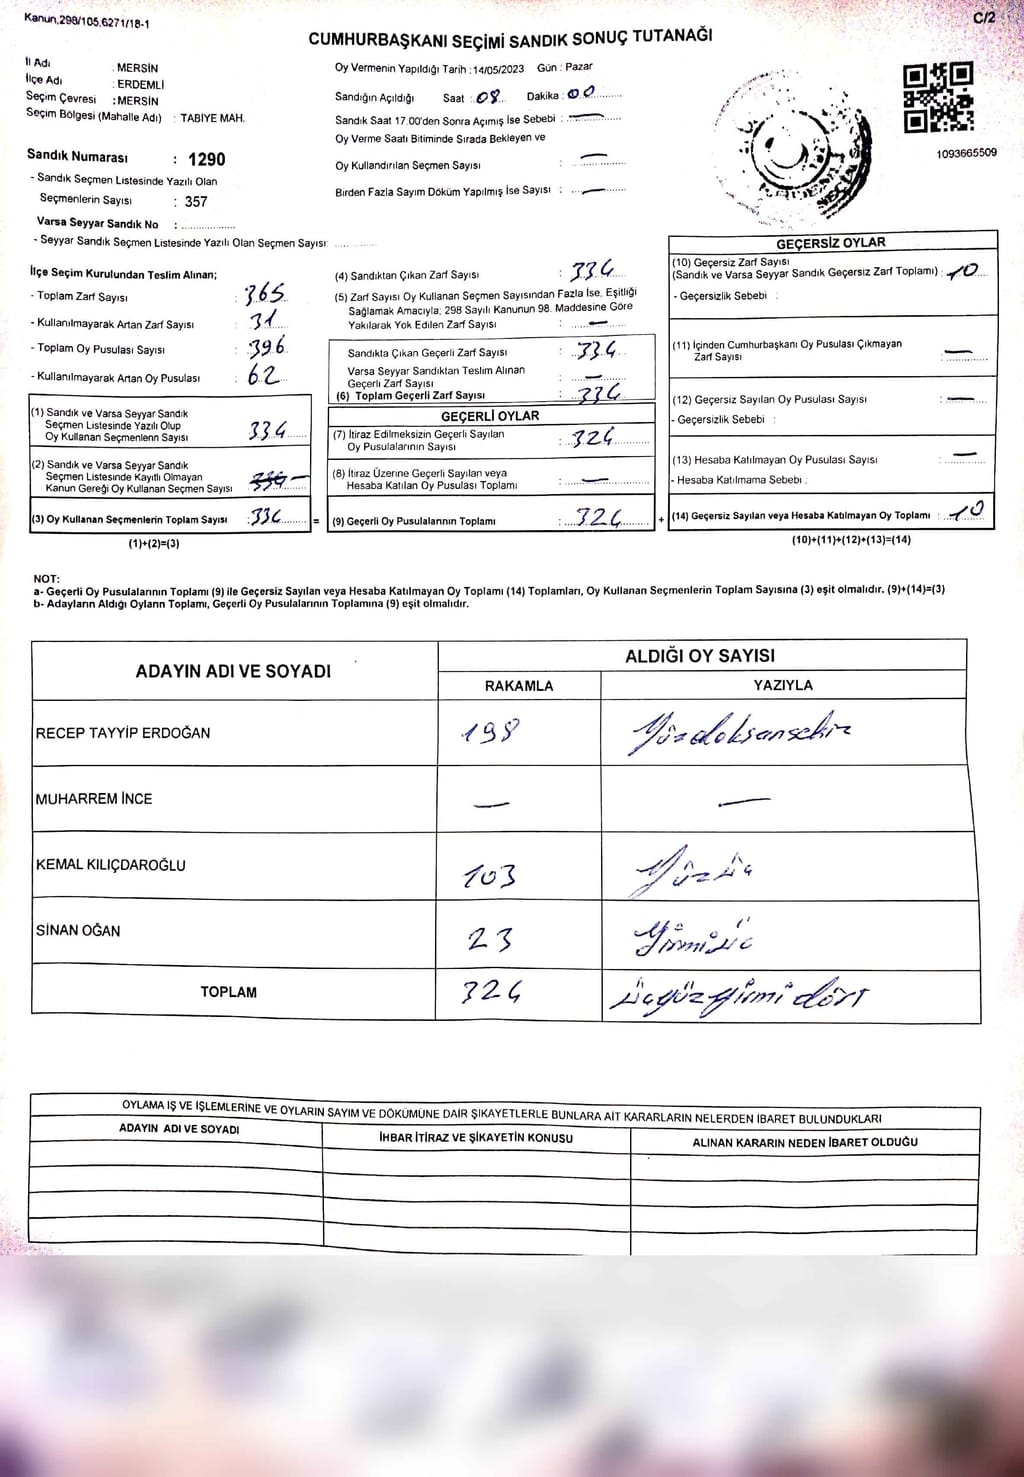 Kanun,298/105,6271/18-1
C/2
CUMHURBAŞKANI SEÇİMİ SANDIK SONUÇ TUTANAĞI
İl Adı : MERSİN
İlçe Adı : ERDEMLİ
Seçim Çevresi : MERSİN
Seçim Bölgesi (Mahalle Adı) : TABİYE MAH.
Sandık Numarası : 1290
- Sandık Seçmen Listesinde Yazılı Olan
Seçmenlerin Sayısı : 357
Varsa Seyyar Sandık No : ..................
- Seyyar Sandık Seçmen Listesinde Yazılı Olan Seçmen Sayısı: .... ..........
Oy Vermenin Yapıldığı Tarih : 14/05/2023 Gün : Pazar
Sandığın Açıldığı Saat : 08 Dakika : 00
Sandık Saat 17.00'den Sonra Açımış İse Sebebi : —
Oy Verme Saatı Bitiminde Sırada Bekleyen ve
Oy Kullandırılan Seçmen Sayısı : —
Birden Fazla Sayım Döküm Yapılmış İse Sayısı : —
1093665509
İlçe Seçim Kurulundan Teslim Alınan;
- Toplam Zarf Sayısı : 365
- Kullanılmayarak Artan Zarf Sayısı : 31
- Toplam Oy Pusulası Sayısı : 396
- Kullanılmayarak Artan Oy Pusulası : 62
(1) Sandık ve Varsa Seyyar Sandık
Seçmen Listesinde Yazılı Olup
Oy Kullanan Seçmenlerın Sayısı 334
(2) Sandık ve Varsa Seyyar Sandık
Seçmen Listesinde Kayıtlı Olmayan
Kanun Gereği Oy Kullanan Seçmen Sayısı —
(3) Oy Kullanan Seçmenlerin Toplam Sayısı : 334 =
(1)+(2)=(3)
(4) Sandıktan Çıkan Zarf Sayısı : 334
(5) Zarf Sayısı Oy Kullanan Seçmen Sayısından Fazla İse, Eşitliği
Sağlamak Amacıyla, 298 Sayılı Kanunun 98. Maddesine Göre
Yakılarak Yok Edilen Zarf Sayısı : —
Sandıkta Çıkan Geçerli Zarf Sayısı : 334
Varsa Seyyar Sandıktan Teslim Alınan
Geçerli Zarf Sayısı : —
(6) Toplam Geçerli Zarf Sayısı : 334
GEÇERLİ OYLAR
(7) İtiraz Edilmeksizin Geçerli Sayılan
Oy Pusulalarının Sayısı : 324
(8) İtiraz Üzerine Geçerli Sayılan veya
Hesaba Katılan Oy Pusulası Toplamı : —
(9) Geçerli Oy Pusulalarının Toplamı : 324 +
GEÇERSİZ OYLAR
(10) Geçersiz Zarf Sayısı
(Sandık ve Varsa Seyyar Sandık Geçersiz Zarf Toplamı) : 10
- Geçersizlik Sebebi :
(11) İçinden Cumhurbaşkanı Oy Pusulası Çıkmayan
Zarf Sayısı : —
(12) Geçersiz Sayılan Oy Pusulası Sayısı : —
- Geçersizlik Sebebi :
(13) Hesaba Katılmayan Oy Pusulası Sayısı : —
- Hesaba Katılmama Sebebi :
(14) Geçersiz Sayılan veya Hesaba Katılmayan Oy Toplamı : 10
(10)+(11)+(12)+(13)=(14)
NOT:
a- Geçerli Oy Pusulalarının Toplamı (9) ile Geçersiz Sayılan veya Hesaba Katılmayan Oy Toplamı (14) Toplamları, Oy Kullanan Seçmenlerin Toplam Sayısına (3) eşit olmalıdır. (9)+(14)=(3)
b- Adayların Aldığı Oyların Toplamı, Geçerli Oy Pusulalarının Toplamına (9) eşit olmalıdır.
ADAYIN ADI VE SOYADI ALDIĞI OY SAYISI
RAKAMLA YAZIYLA
RECEP TAYYİP ERDOĞAN 198 Yüzdoksansekiz
MUHARREM İNCE — —
KEMAL KILIÇDAROĞLU 103 Yüzüç
SİNAN OĞAN 23 Yirmiüç
TOPLAM 324 Üçyüzyirmidört
OYLAMA IŞ VE IŞLEMLERİNE VE OYLARIN SAYIM VE DÖKÜMÜNE DAİR ŞIKAYETLERLE BUNLARA AİT KARARLARIN NELERDEN İBARET BULUNDUKLARI
ADAYIN ADI VE SOYADI İHBAR İTİRAZ VE ŞİKAYETİN KONUSU ALINAN KARARIN NEDEN İBARET OLDUĞU